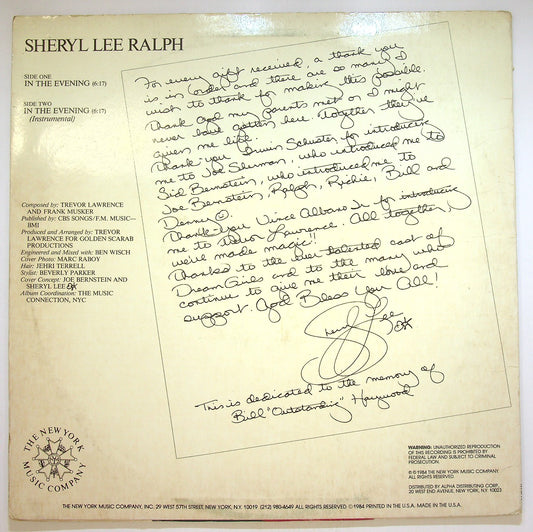 SHERYL LEE RALPH
SIDE ONE
IN THE EVENING (6:17)
SIDE TWO
IN THE EVENING (6:17)
(Instrumental)
Composed by: TREVOR LAWRENCE
AND FRANK MUSKER
Published by: CBS SONGS/F.M. MUSIC—
BMI
Produced and Arranged by: TREVOR
LAWRENCE FOR GOLDEN SCARAB
PRODUCTIONS
Engineered and Mixed with: BEN WISCH
Cover Photo: MARC RABOY
Hair: JEHRI TERRELL
Stylist: BEVERLY PARKER
Cover Concept: JOE BERNSTEIN AND
SHERYL LEE
Album Coordination: THE MUSIC
CONNECTION, NYC
For every gift received, a thank you
is in order and there are so many I
wish to thank for making this possible.
Thank God my parents met or I might
never have gotten here. Together they've
given me life.
Thank-you Irwin Schuster for introducing
me to Joe Shuman, who introduced me to
Sid Bernstein, who introduced me to
Joe Bernstein, Ralph, Richie, Bill and
Denny
Thank-you Vince Albano Jr for introducing
me to Trevor Lawrence. All together
we've made magic!!
Thanks to the talented cast of
Dream Girls and to the many who
continue to give me their love and
support. God Bless You All!
Sheryl Lee
This is dedicated to the memory of
Bill "Outstanding" Haywood
THE NEW YORK
MUSIC COMPANY
WARNING: UNAUTHORIZED REPRODUCTION
OF THIS RECORDING IS PROHIBITED BY
FEDERAL LAW AND SUBJECT TO CRIMINAL
PROSECUTION.
℗ © 1984 THE NEW YORK MUSIC COMPANY.
ALL RIGHTS RESERVED.
DISTRIBUTED BY ALPHA DISTRIBUTING CORP.,
20 WEST END AVENUE, NEW YORK, N.Y. 10023
THE NEW YORK MUSIC COMPANY, INC. 29 WEST 57TH STREET, NEW YORK, N.Y. 10019 (212) 980-4649 ALL RIGHTS RESERVED © 1984 PRINTED IN THE U.S.A. MADE IN U.S.A.